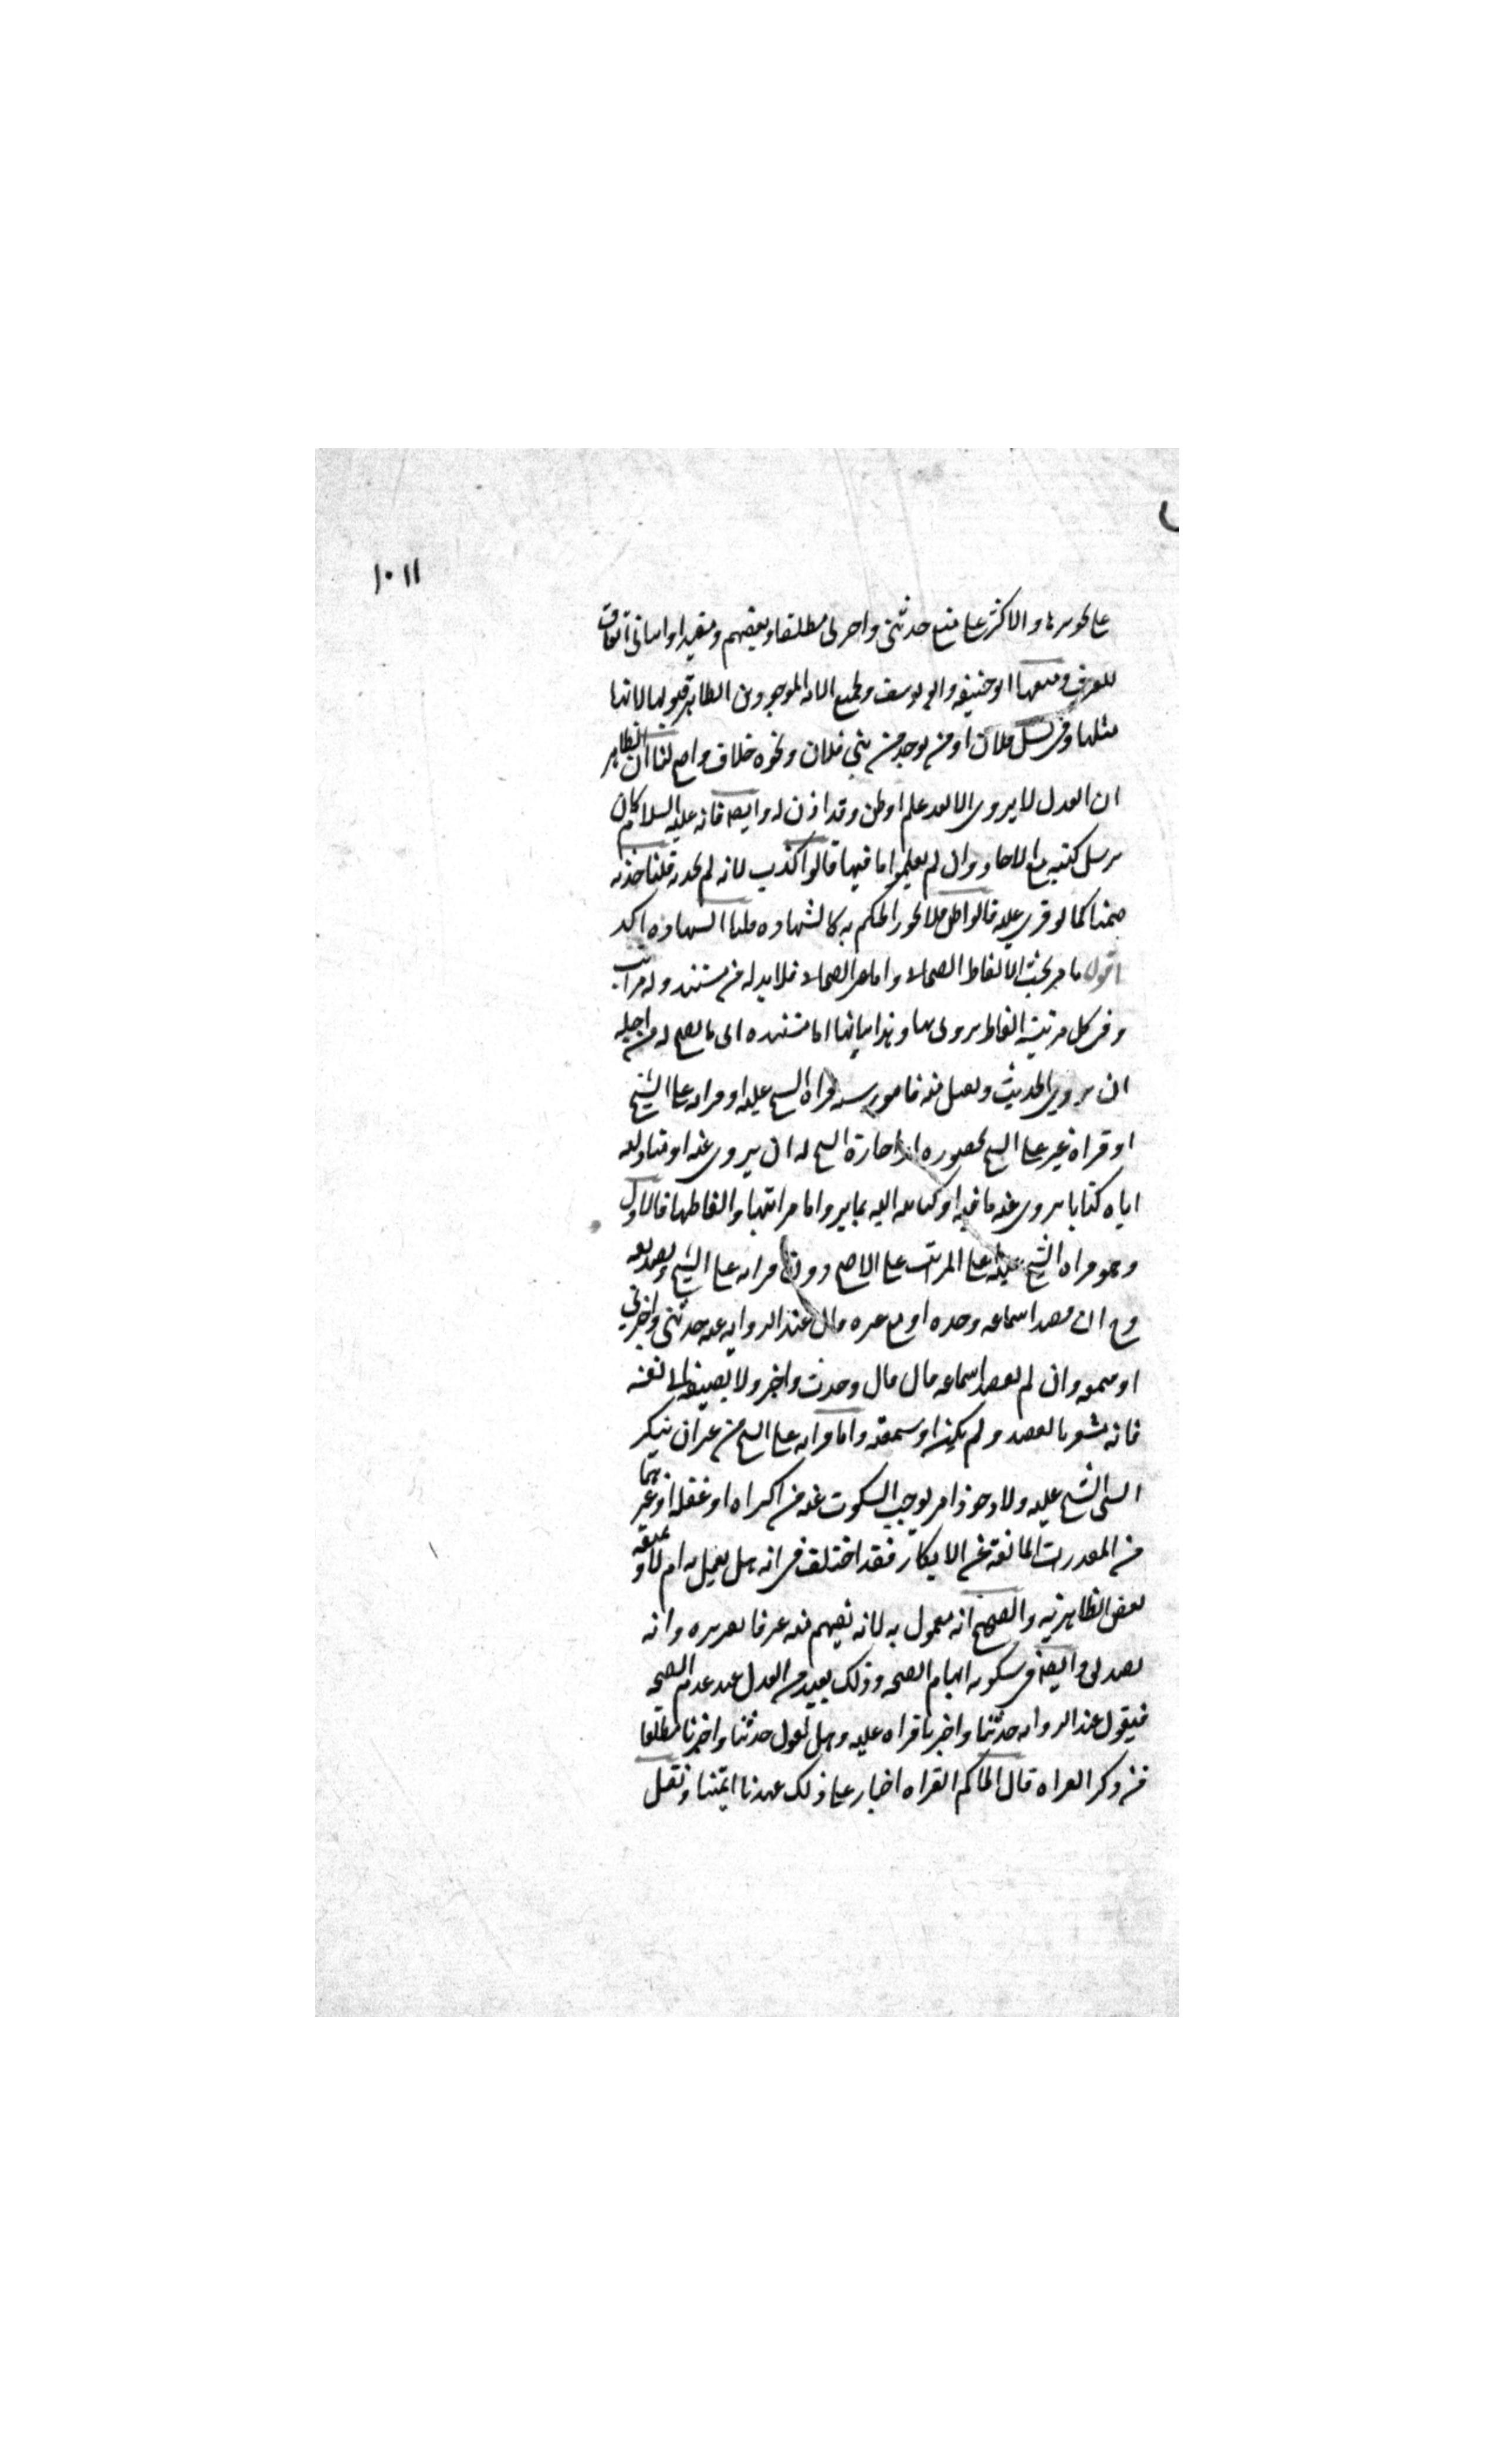 ١٠١١
على تجويزها والاكثر على منع حدثني واخبرني مطلقا وبعضهم ومقيدا وانبأني اتفاق
للعرف ومنعها ابو حنيفه وابو يوسف ولجميع الامه الموجودين الظاهر قبولها لانها
مثلها وفي نسل فلان او من يوجد من بني فلان ونحوه خلاف واضح لنا ان الظاهر
ان العدل لا يروي الا بعد علم او ظن وقد اذن له وايضا فانه عليه السلام كان
يرسل كتبه مع الاحاد وان لم يعلموا ما فيها قالوا كذب لانه لم يحدثه قلنا حدثه
ضمنا كما لو قرى عليه قالوا ظن فلا يجوز الحكم به كالشهاده قلنا الشهاده اكد
اقول ما مر بحث الالفاظ الصحابي واما غير الصحابي فلا بد له من مستند وله مراتب
وفي كل مرتبة الفاظ يروى بها وهذا بيانها اما مستنده اى ما يصح له من اجله
ان يروي الحديث ويقبل منه فامور سته قراه الشيخ عليه او قراته على الشيخ
او قراة غيره على الشيخ بحضوره او اجازة الشيخ له ان يروى عنه او مناولته
اياه كتابا يروى عنه ما فيه او كتابته اليه بما يروى واما مراتبها والفاظها فالاول
وهو قراه الشيخ عليه اعلى المراتب على الاصح دون قراته على الشيخ وبعد
وح ان قصد اسماعه وحده او مع غيره قال عند الروايه عنه حدثني واخبرني
او سمعته وان لم يقصد اسماعه قال قال وحدث واخبر ولا يضيفه الى نفسه
فانه يشعر بالقصد ولم يكن او سمعته واما قراته على الشيخ من غير ان ينكر
الشيخ عليه ولا وجود امر يوجب السكوت عنه من اكراه او غفله او غيرهما
من المقدرات المانعه عن الانكار فقد اختلف في انه هل يعمل به ام لا
بعض الظاهريه والصحيح انه معمول به لانه يفهم منه عرفا تقريره وانه
تصديق وايضا في سكوته ايهام الصحه وذلك بعيد من العدل عند عدم الصحه
فيقول عند الروايه حدثنا واخبرنا قراه عليه وهل يقول حدثنا واخبرنا مطلقا
من ذكر القراه قال الحاكم القراه اخبار على ذلك عهدنا ائمتنا ونقل